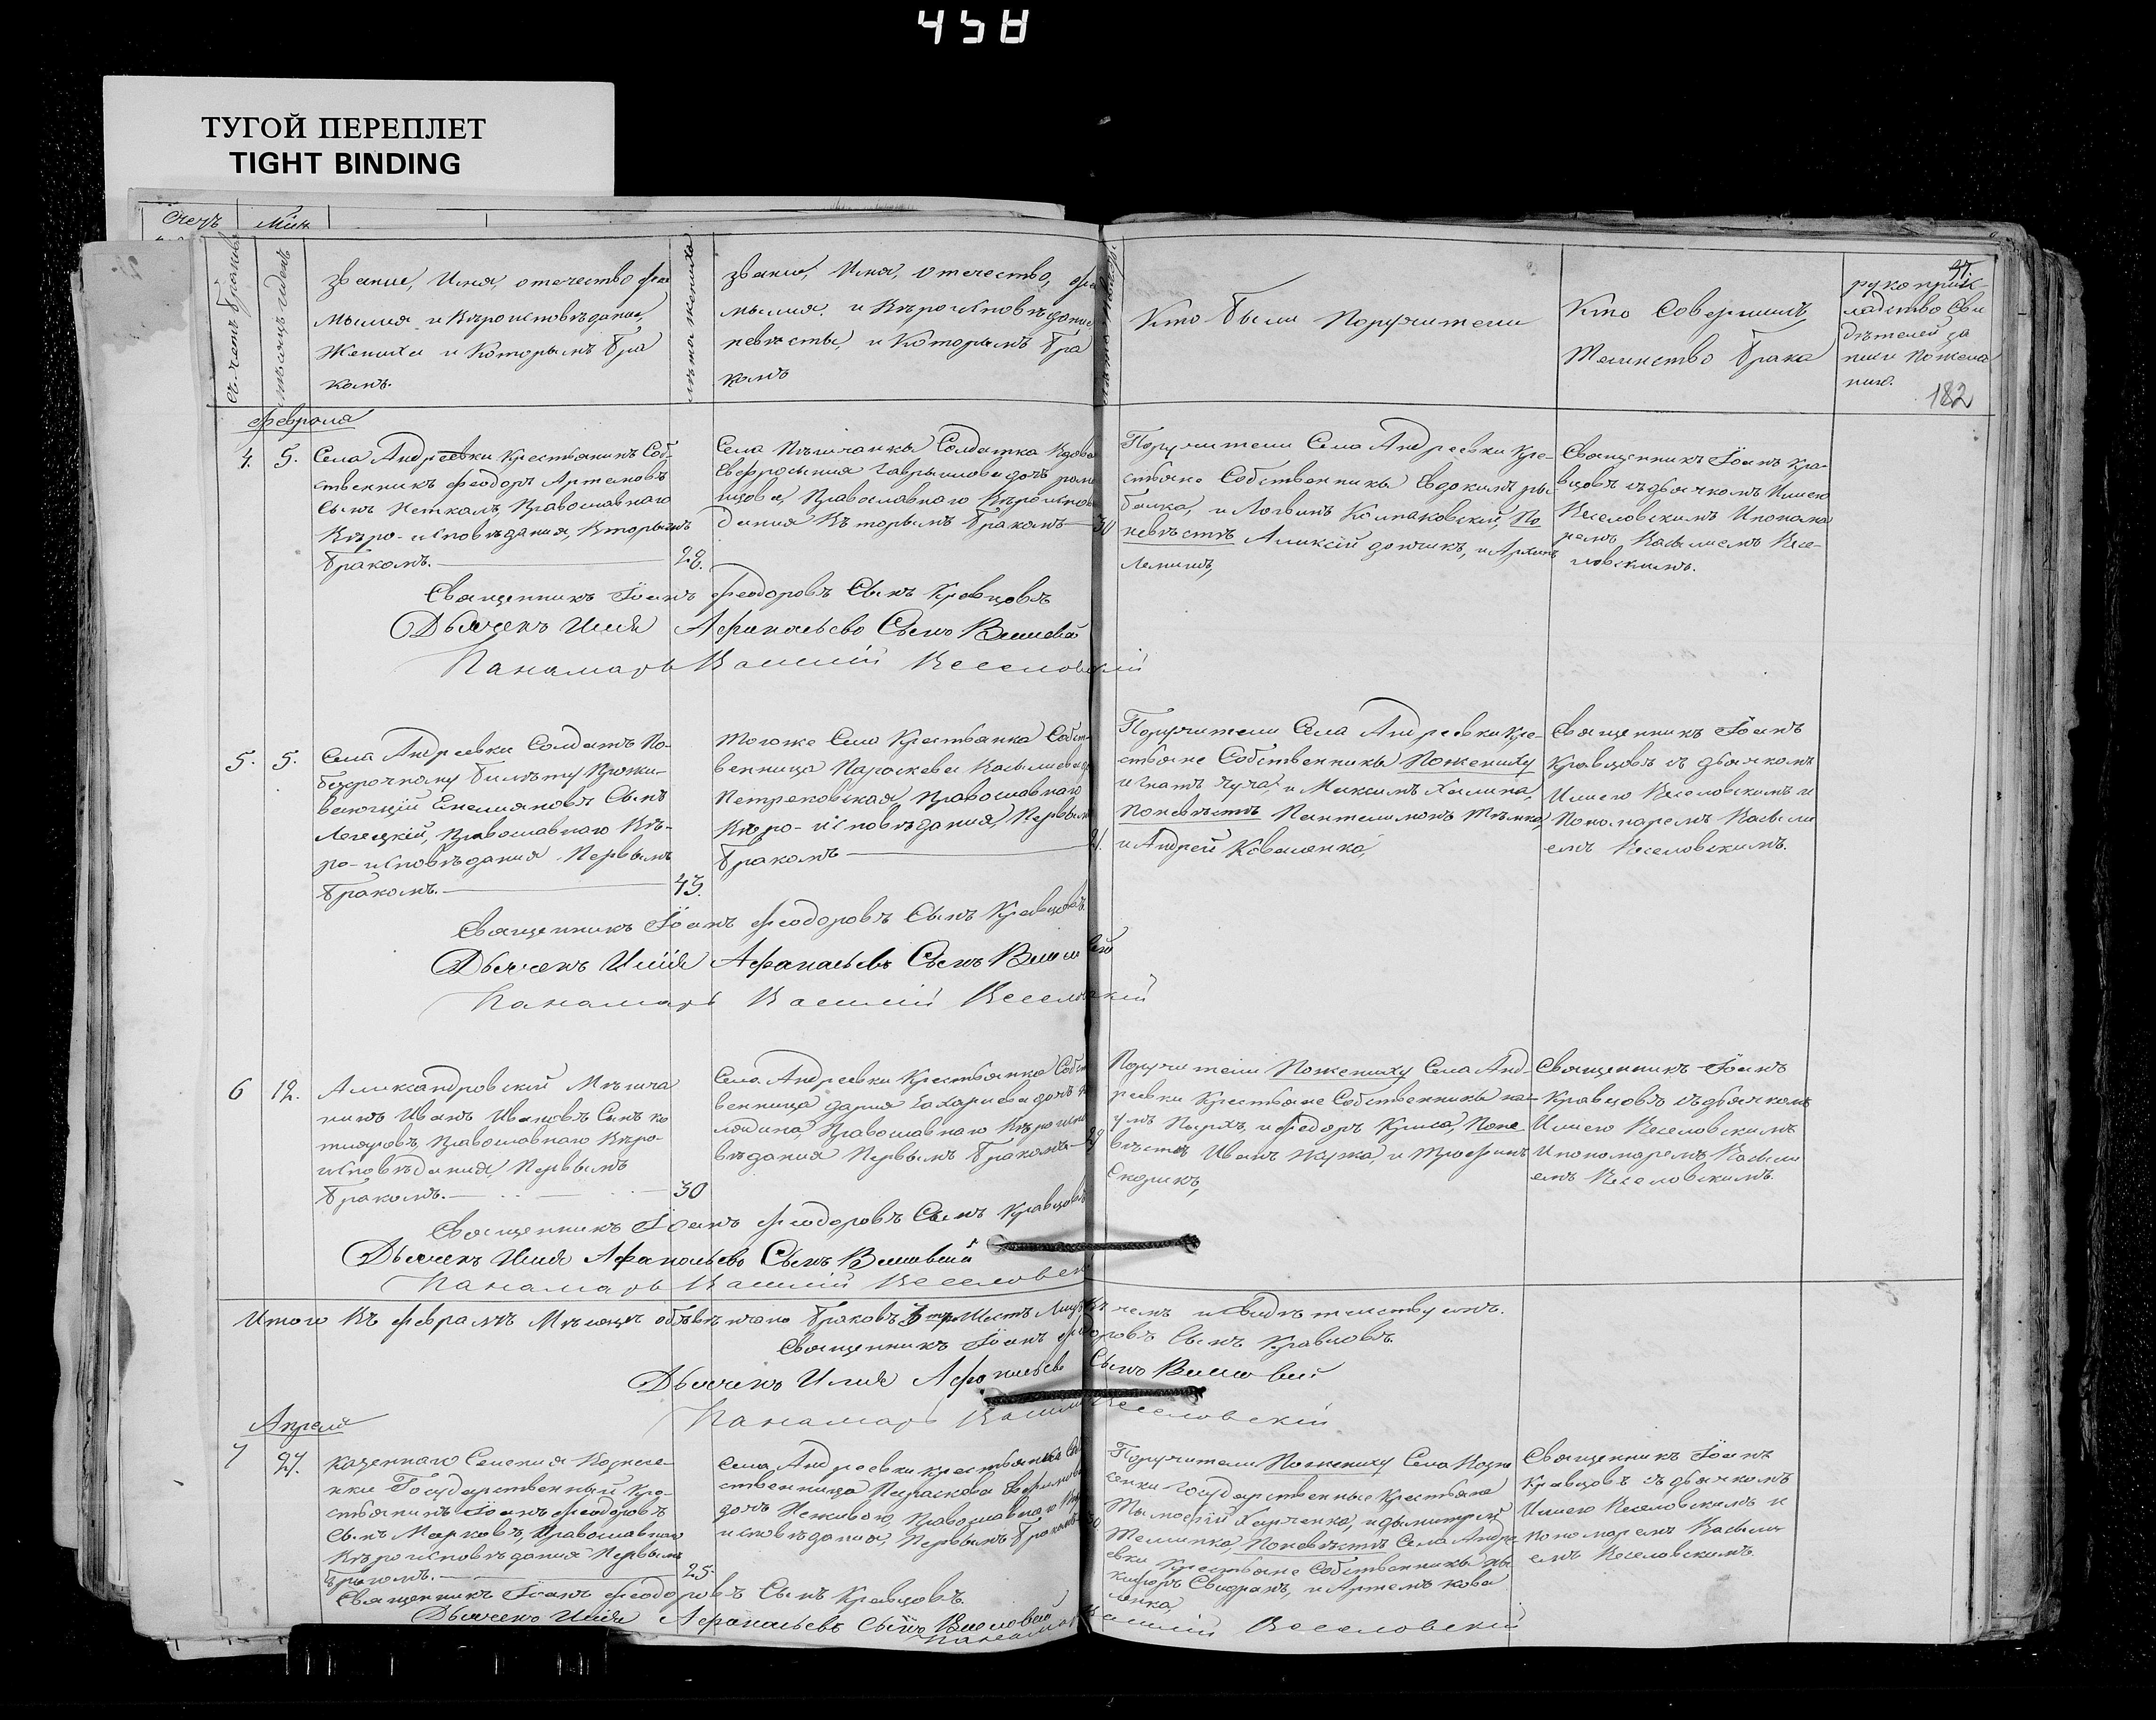 458
ТУГОЙ ПЕРЕПЛЕТ
TIGHT BINDING
Счетъ
Мѣся
Счетъ браковъ
Мѣсяцъ и день
Званіе, Имя, отечество фа
милія и Вѣроисповѣданіе,
Жениха и Которымъ бра
комъ.
лѣта жениха
Званіе, Имя, отечество, фа
милія, и Вѣроисповѣданіе
невѣсты, и Которымъ бра
комъ
Кто были Поручители
Кто Совершилъ
Таинство брака
рукоприк-
ладство Сви
дѣтелей за
писи по жела
нію.
182
Февраля
4. 5.
Села Андреевки Крестьянинъ Соб-
ственникъ Феодоръ Артемовъ
Сынъ Неткалъ, Православнаго
Вѣро-исповѣданія, Вторымъ
бракомъ. 28.
Села Солдатка Вдова
Евфросинія Гаврылова дочь
Православнаго Вѣроиспов
данія Вторымъ бракомъ 30
Поручители Села Андреевки Кре-
стьяне Собственники Евдокимъ ры-
балка, и Логвинъ Колпаковскій, По
невѣстѣ Алексій и Архипъ
Священникъ Іоанъ Кра-
вцовъ съ дьячкомъ Иліею
Веселовскимъ И понома
ремъ Васыліемъ Весе-
ловскимъ.
Священникъ Іоанъ Феодоровъ Сынъ Кравцовъ
Дьячекъ Илія Афанасьевъ Сынъ
Панамарь Василій Веселовскій
5. 5.
Села Андреевки Солдатъ По-
безсрочному билѣту Прожи-
вающій Емеліановъ Сынъ
Православнаго Вѣ-
ро-исповѣданія Первымъ
бракомъ. 43.
Тогоже Села Крестьянка Собст-
венница Параскева Васыліева
Петраковская, Православнаго
Вѣро-исповѣданія, Первымъ
бракомъ
Поручители Села Андреевки Кре-
стьяне Собственники По жениху
Игнатъ и Максимъ Халина,
По невѣстѣ Пантелимонъ
и Андрей Коваленко,
Священникъ Іоанъ
Кравцовъ съ дьячкомъ
Иліею Веселовскимъ и
Пономаремъ Васыли
емъ Веселовскимъ.
Священникъ Іоанъ Феодоровъ Сынъ Кравцовъ.
Дьячекъ Илія Афанасьевъ Сынъ
Панамарь Василій Веселовскій
6 12.
Александровскій Мѣща
нинъ Иванъ Ивановъ Сынъ ко
тляровъ, Православнаго Вѣро-
исповѣданія, Первымъ
бракомъ. 30
Села Андреевки Крестьянка Собст
венница Дарія Захаріева дочь
Православнаго Вѣроиспо
вѣданія Первымъ бракомъ
Поручители По жениху Села Анд-
реевки Крестьяне Собственники на-
умъ и Федоръ Крыса, По не
вѣстѣ Иванъ и Трофимъ
Скорикъ,
Священникъ Іоанъ
Кравцовъ съ дьячкомъ
Иліею Веселовскимъ
И пономаремъ Васыли
емъ Веселовскимъ.
Священникъ Іоанъ Феодоровъ Сынъ Кравцовъ
Дьячекъ Илія Афанасьевъ Сынъ
Панамарь Василій Веселовскій
Итого Въ Февралѣ Мѣсяцѣ обвѣнчано браковъ Шесть въ чемъ и свидѣтельствуемъ.
Священникъ Іоанъ Феодоровъ Сынъ Кравцовъ.
Дьячекъ Илія Афанасьевъ Сынъ
Панамарь Василій Веселовскій
Апреля
7 27.
Казеннаго Селенія
Государственный Кре-
стьянинъ Іоанъ Феодоровъ
Сынъ Марковъ, Православнаго
Вѣроисповѣданія Первымъ
бракомъ. 25.
Села Андреевки Крестьянка Соб
ственница Параскева Ефимова
дочь Неживого, Православнаго Вѣро
исповѣданія, Первымъ бракомъ
Поручители По жениху Села
Государственные Крестьяне
Тимофій Харченко, и Дымитрій
По невѣстѣ Села Андре
евки Крестьяне Собственники Ны-
кифоръ и Артемъ Кова
ленко,
Священникъ Іоанъ
Кравцовъ съ дьячкомъ
Иліею Веселовскимъ и
пономаремъ Васыли
емъ Веселовскимъ.
Священникъ Іоанъ Феодоровъ Сынъ Кравцовъ.
Дьячекъ Илія Афанасьевъ Сынъ
Панамарь Василій Веселовскій